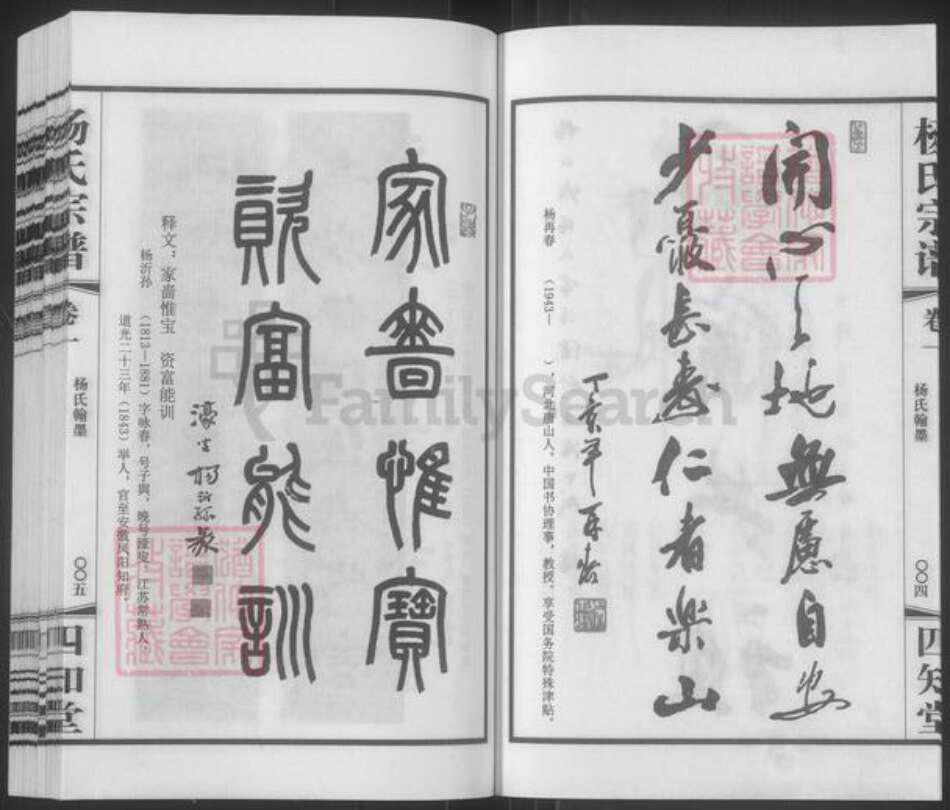 杨氏宗谱
卷一
杨氏翰墨
〇〇四
四知堂
開心之地無慮自安
少飲長壽仁者樂山
丁亥年 再春
杨再春 (1943— ),河北唐山人。中国书协理事,教授,享受国务院特殊津贴。
家嗇惟寶
資富能訓
濠叟楊沂孫篆
释文:家啬惟宝 资富能训
杨沂孙 (1813—1881)字咏春,号子舆,晚号濠叟,江苏常熟人,
道光二十三年(1843)举人,官至安徽凤阳知府。
杨氏宗谱
卷一
杨氏翰墨
〇〇五
四知堂
FamilySearch